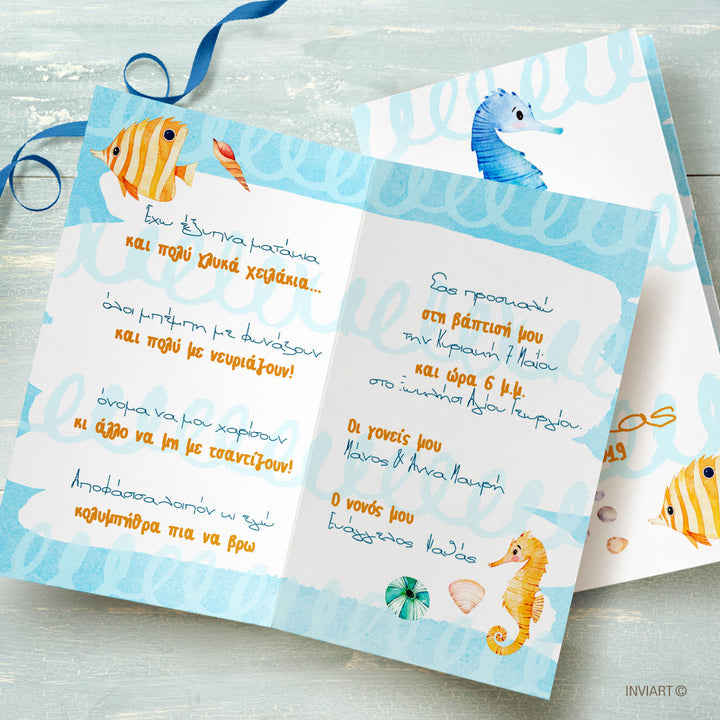 Έχω έξυπνα ματάκια
και πολύ γλυκά χειλάκια...
όλοι μπέμπη με φωνάζουν
και πολύ με νευριάζουν!
όνομα να μου χαρίσουν
κι άλλο να μη με τσαντίζουν!
Αποφάσισα λοιπόν κι εγώ
κολυμπήθρα πια να βρω
Σας προσκαλώ
στη βάπτισή μου
την Κυριακή 7 Μαΐου
και ώρα 6 μ.μ.
στο Εκκλήσι Αγίου Γεωργίου.
Οι γονείς μου
Μάνος & Άννα Μακρή
Ο νονός μου
Ευάγγελος Μαθάς
INVIART ©